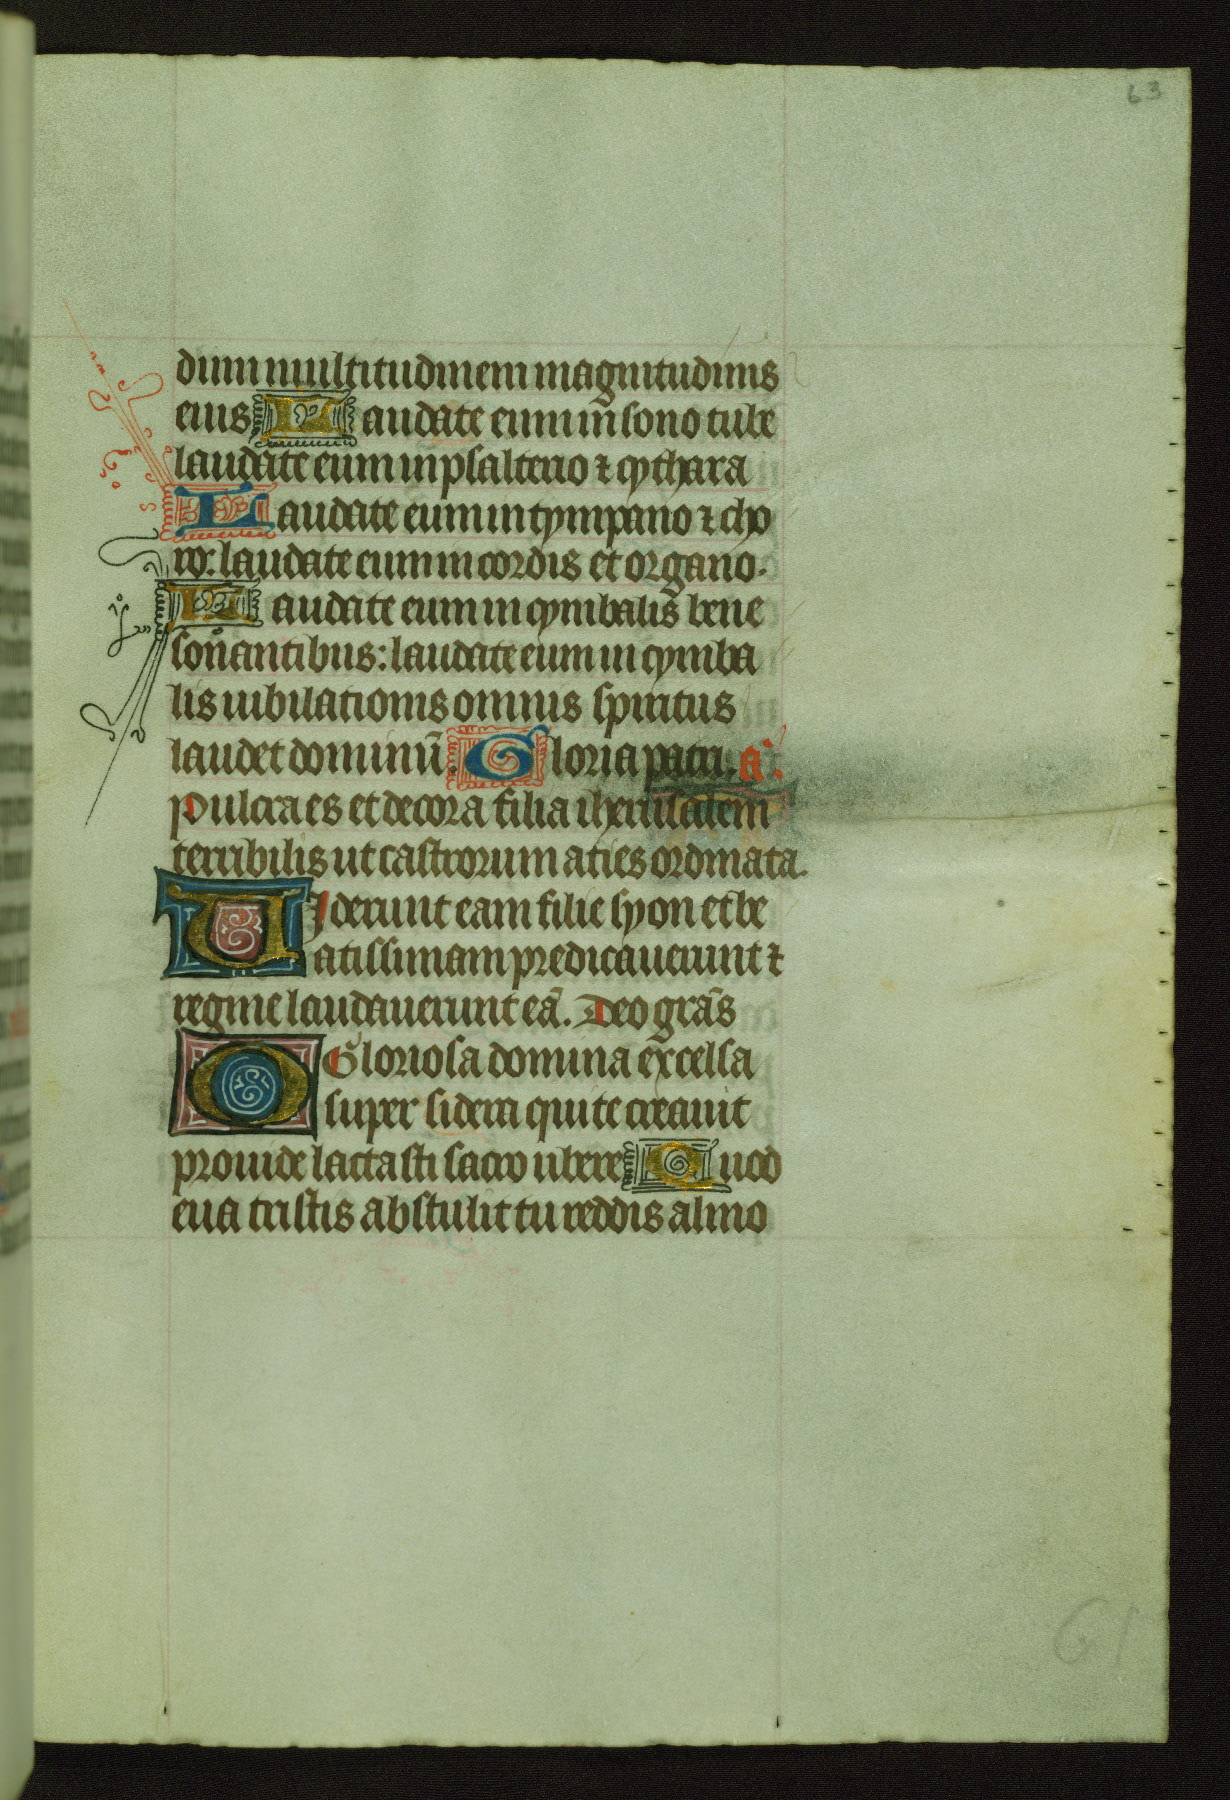 63
dum multitudinem magnitudinis
eius Laudate eum in sono tube
laudate eum in psalterio ⁊ cythara
Laudate eum in tympano ⁊ cho
ro: laudate eum in cordis et organo.
Laudate eum in cymbalis bene
sonantibus: laudate eum in cymba
lis iubilationis omnis spiritus
laudet dominū. Gloria patri. a͛.
Pulcra es et decora filia iherusalem
terribilis ut castrorum aties ordinata.
Uiderunt eam filie syon et be
atissimam predicauerunt ⁊
regine laudauerunt eā. Deo grās
O Gloriosa domina excelsa
super sidera qui te creauit
prouide lactasti sacro ubere Quod
eua tristis abstulit tu reddis almo
61